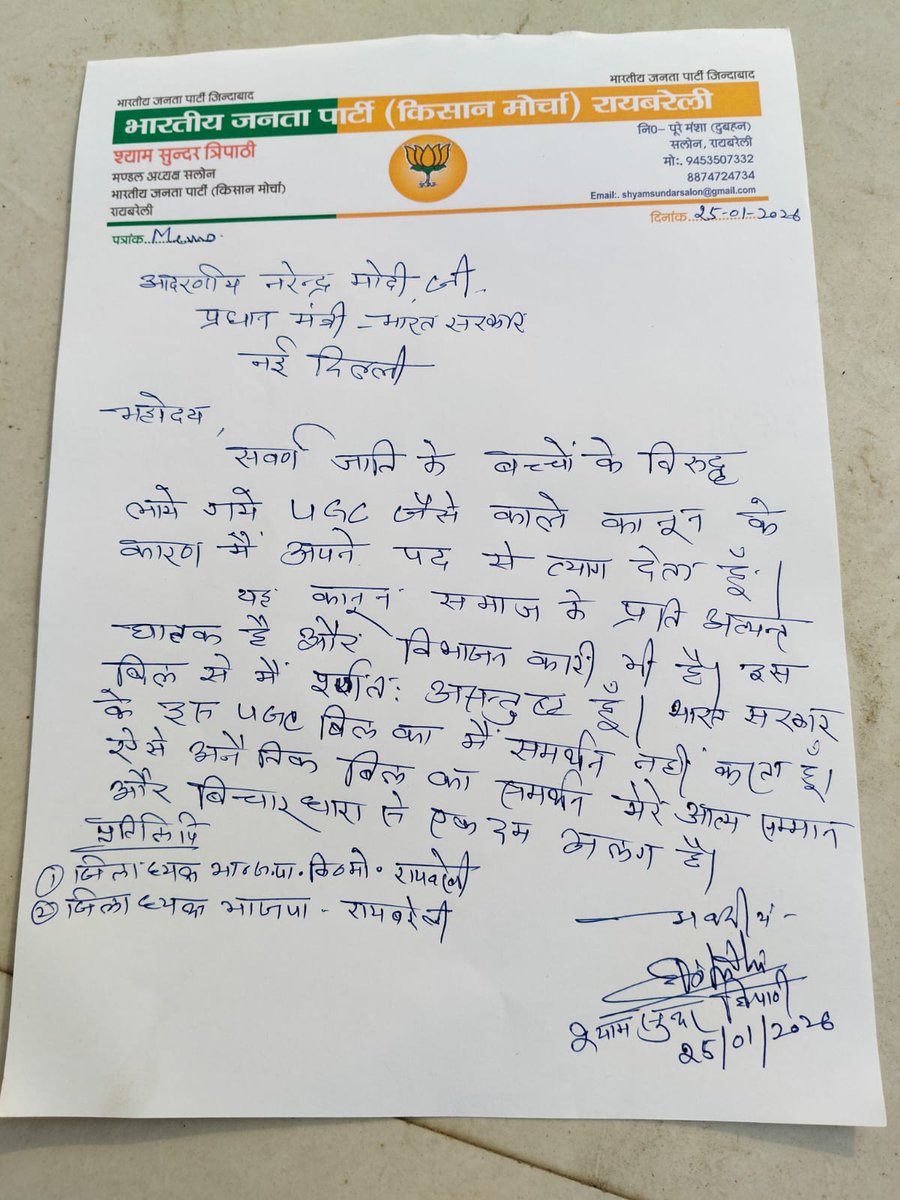 भारतीय जनता पार्टी जिन्दाबाद
भारतीय जनता पार्टी जिन्दाबाद
भारतीय जनता पार्टी (किसान मोर्चा) रायबरेली
श्याम सुन्दर त्रिपाठी
मण्डल अध्यक्ष सलोन
भारतीय जनता पार्टी (किसान मोर्चा)
रायबरेली
नि०– पूरे मंशा (दुबहन)
सलोन, रायबरेली
मो:. 9453507332
8874724734
Email:. shyamsundarsalon@gmail.com
पत्रांक..Memo.
दिनांक.25-01-2026
आदरणीय नरेन्द्र मोदी जी,
प्रधान मंत्री - भारत सरकार
नई दिल्ली
महोदय,
सवर्ण जाति के बच्चों के विरुद्ध
लाये गये UGC जैसे काले कानून के
कारण मैं अपने पद से त्याग देता हूँ।
यह कानून समाज के प्रति अत्यन्त
घातक है और विभाजन कारी भी है। इस
बिल से मैं पूर्णत: असन्तुष्ट हूँ। भारत सरकार
के इस UGC बिल का मैं समर्थन नहीं करता हूँ।
ऐसे अनैतिक बिल का समर्थन मेरे आत्म सम्मान
और बिचारधारा से एकदम अलग है।
प्रतिलिपि
① जिलाध्यक्ष भाजपा. कि०मो. रायबरेली
② जिलाध्यक्ष भाजपा - रायबरेली
भवदीय -
श्याम सुन्दर त्रिपाठी
25/01/2026